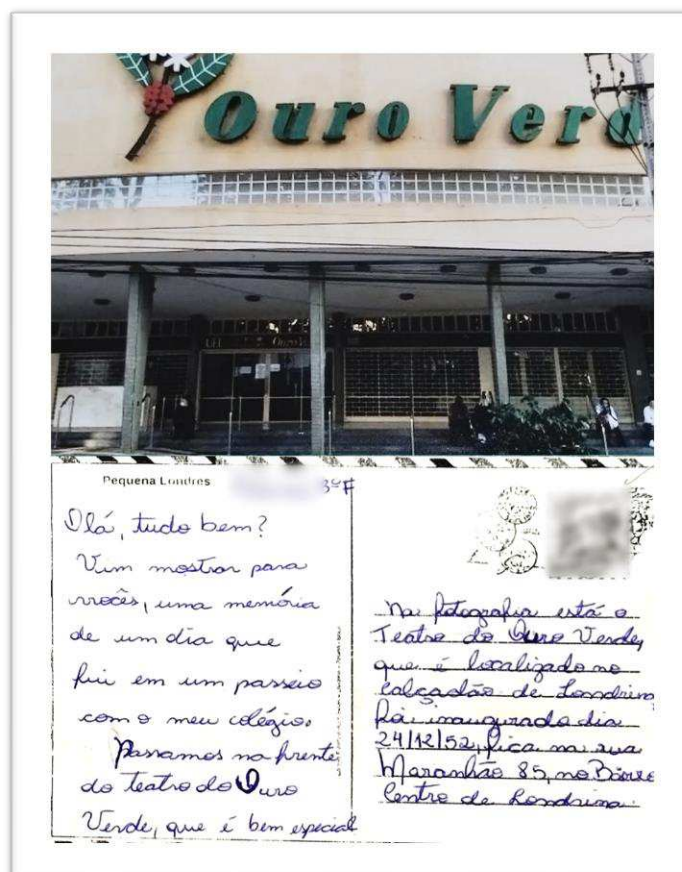 Ouro Verd
Ouro
Pequena Londres
3º F
Olá, tudo bem?
Vim mostrar para
vocês, uma memória
de um dia que
fui em um passeio
com o meu colégio.
Passamos na frente
do teatro do Ouro
Verde, que é bem especial
Na fotografia está o
Teatro do Ouro Verde,
que é localizado no
calçadão de Londrina
foi inaugurado dia
24/12/52, fica na rua
Maranhão 85, no Bairro
Centro de Londrina.